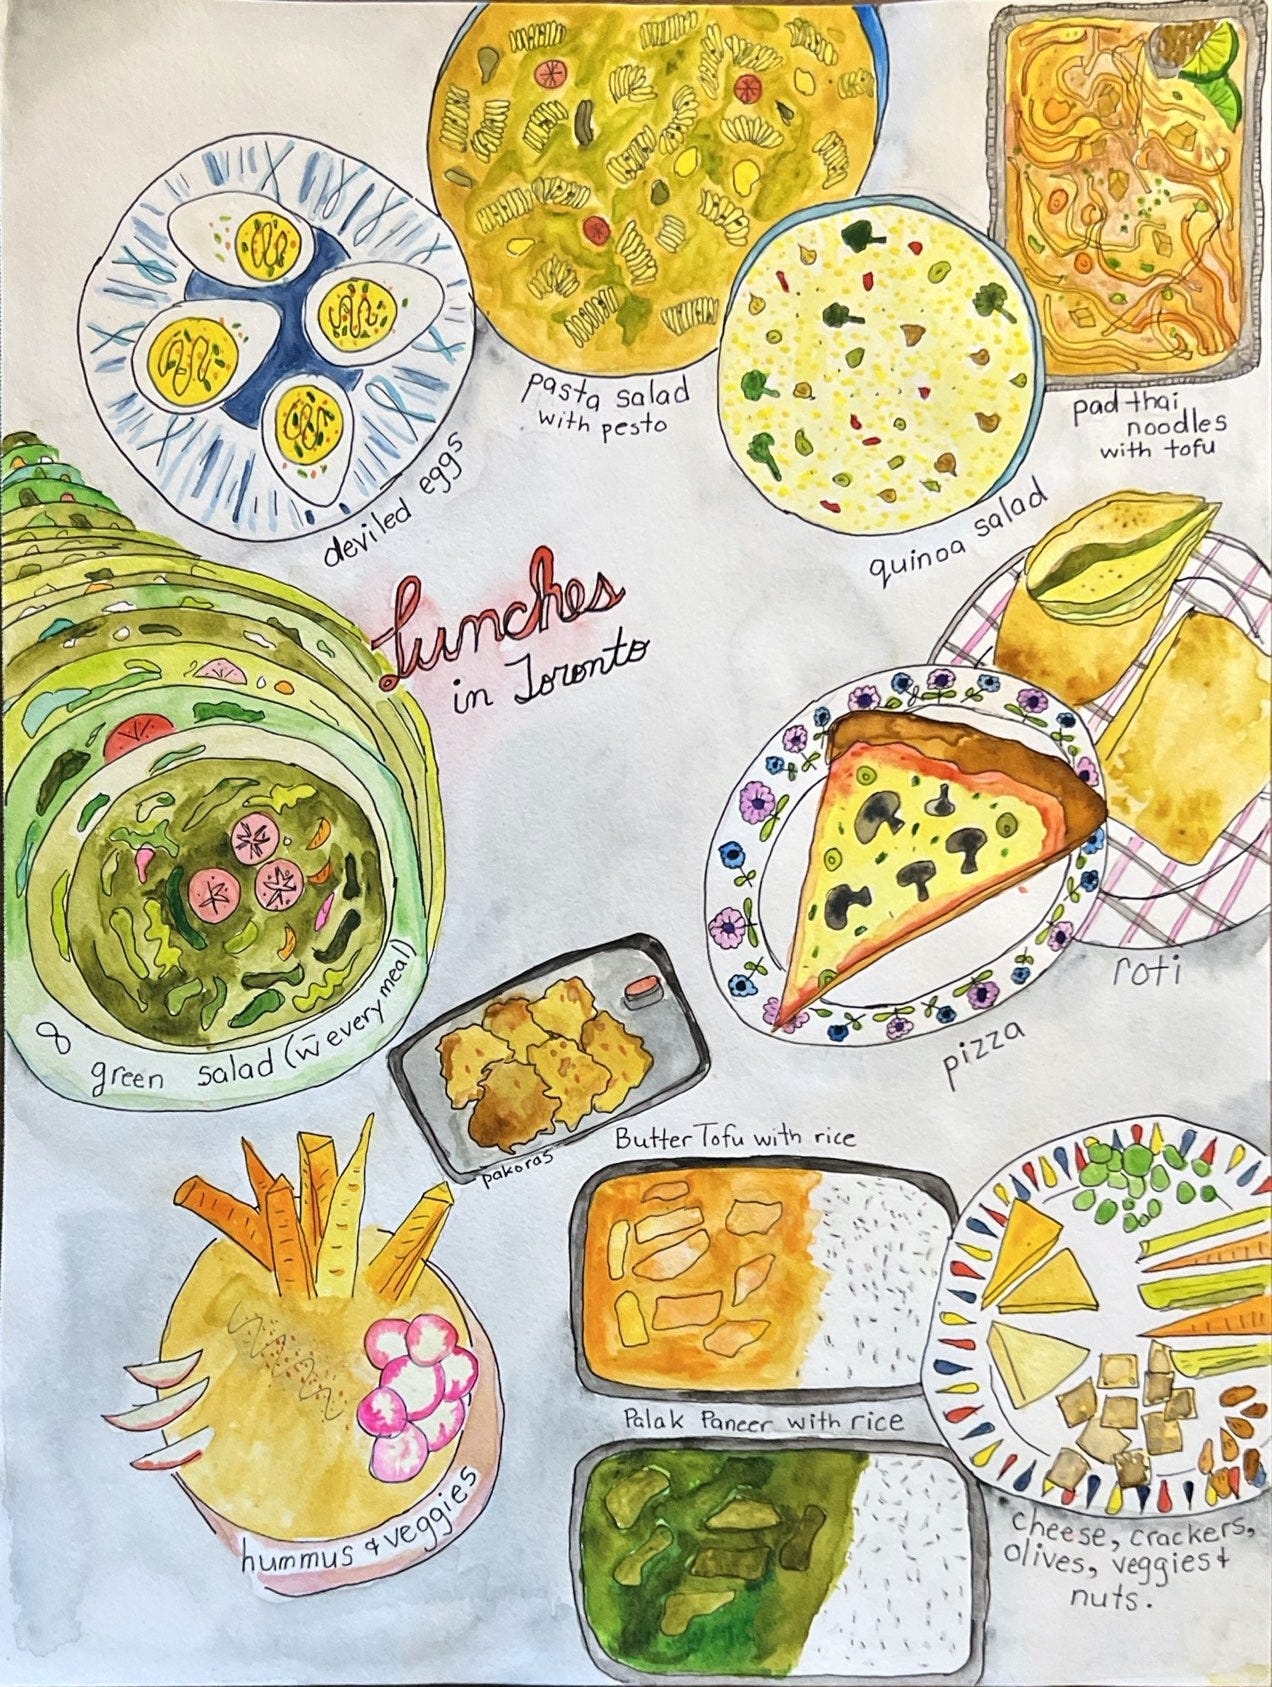 pasta salad
with pesto
pad thai
noodles
with tofu
deviled eggs
quinoa salad
Lunches
in Toronto
roti
pizza
8 green salad (w̄ every meal)
pakoras
Butter Tofu with rice
Palak Paneer with rice
hummus & veggies
cheese, crackers,
olives, veggies &
nuts.